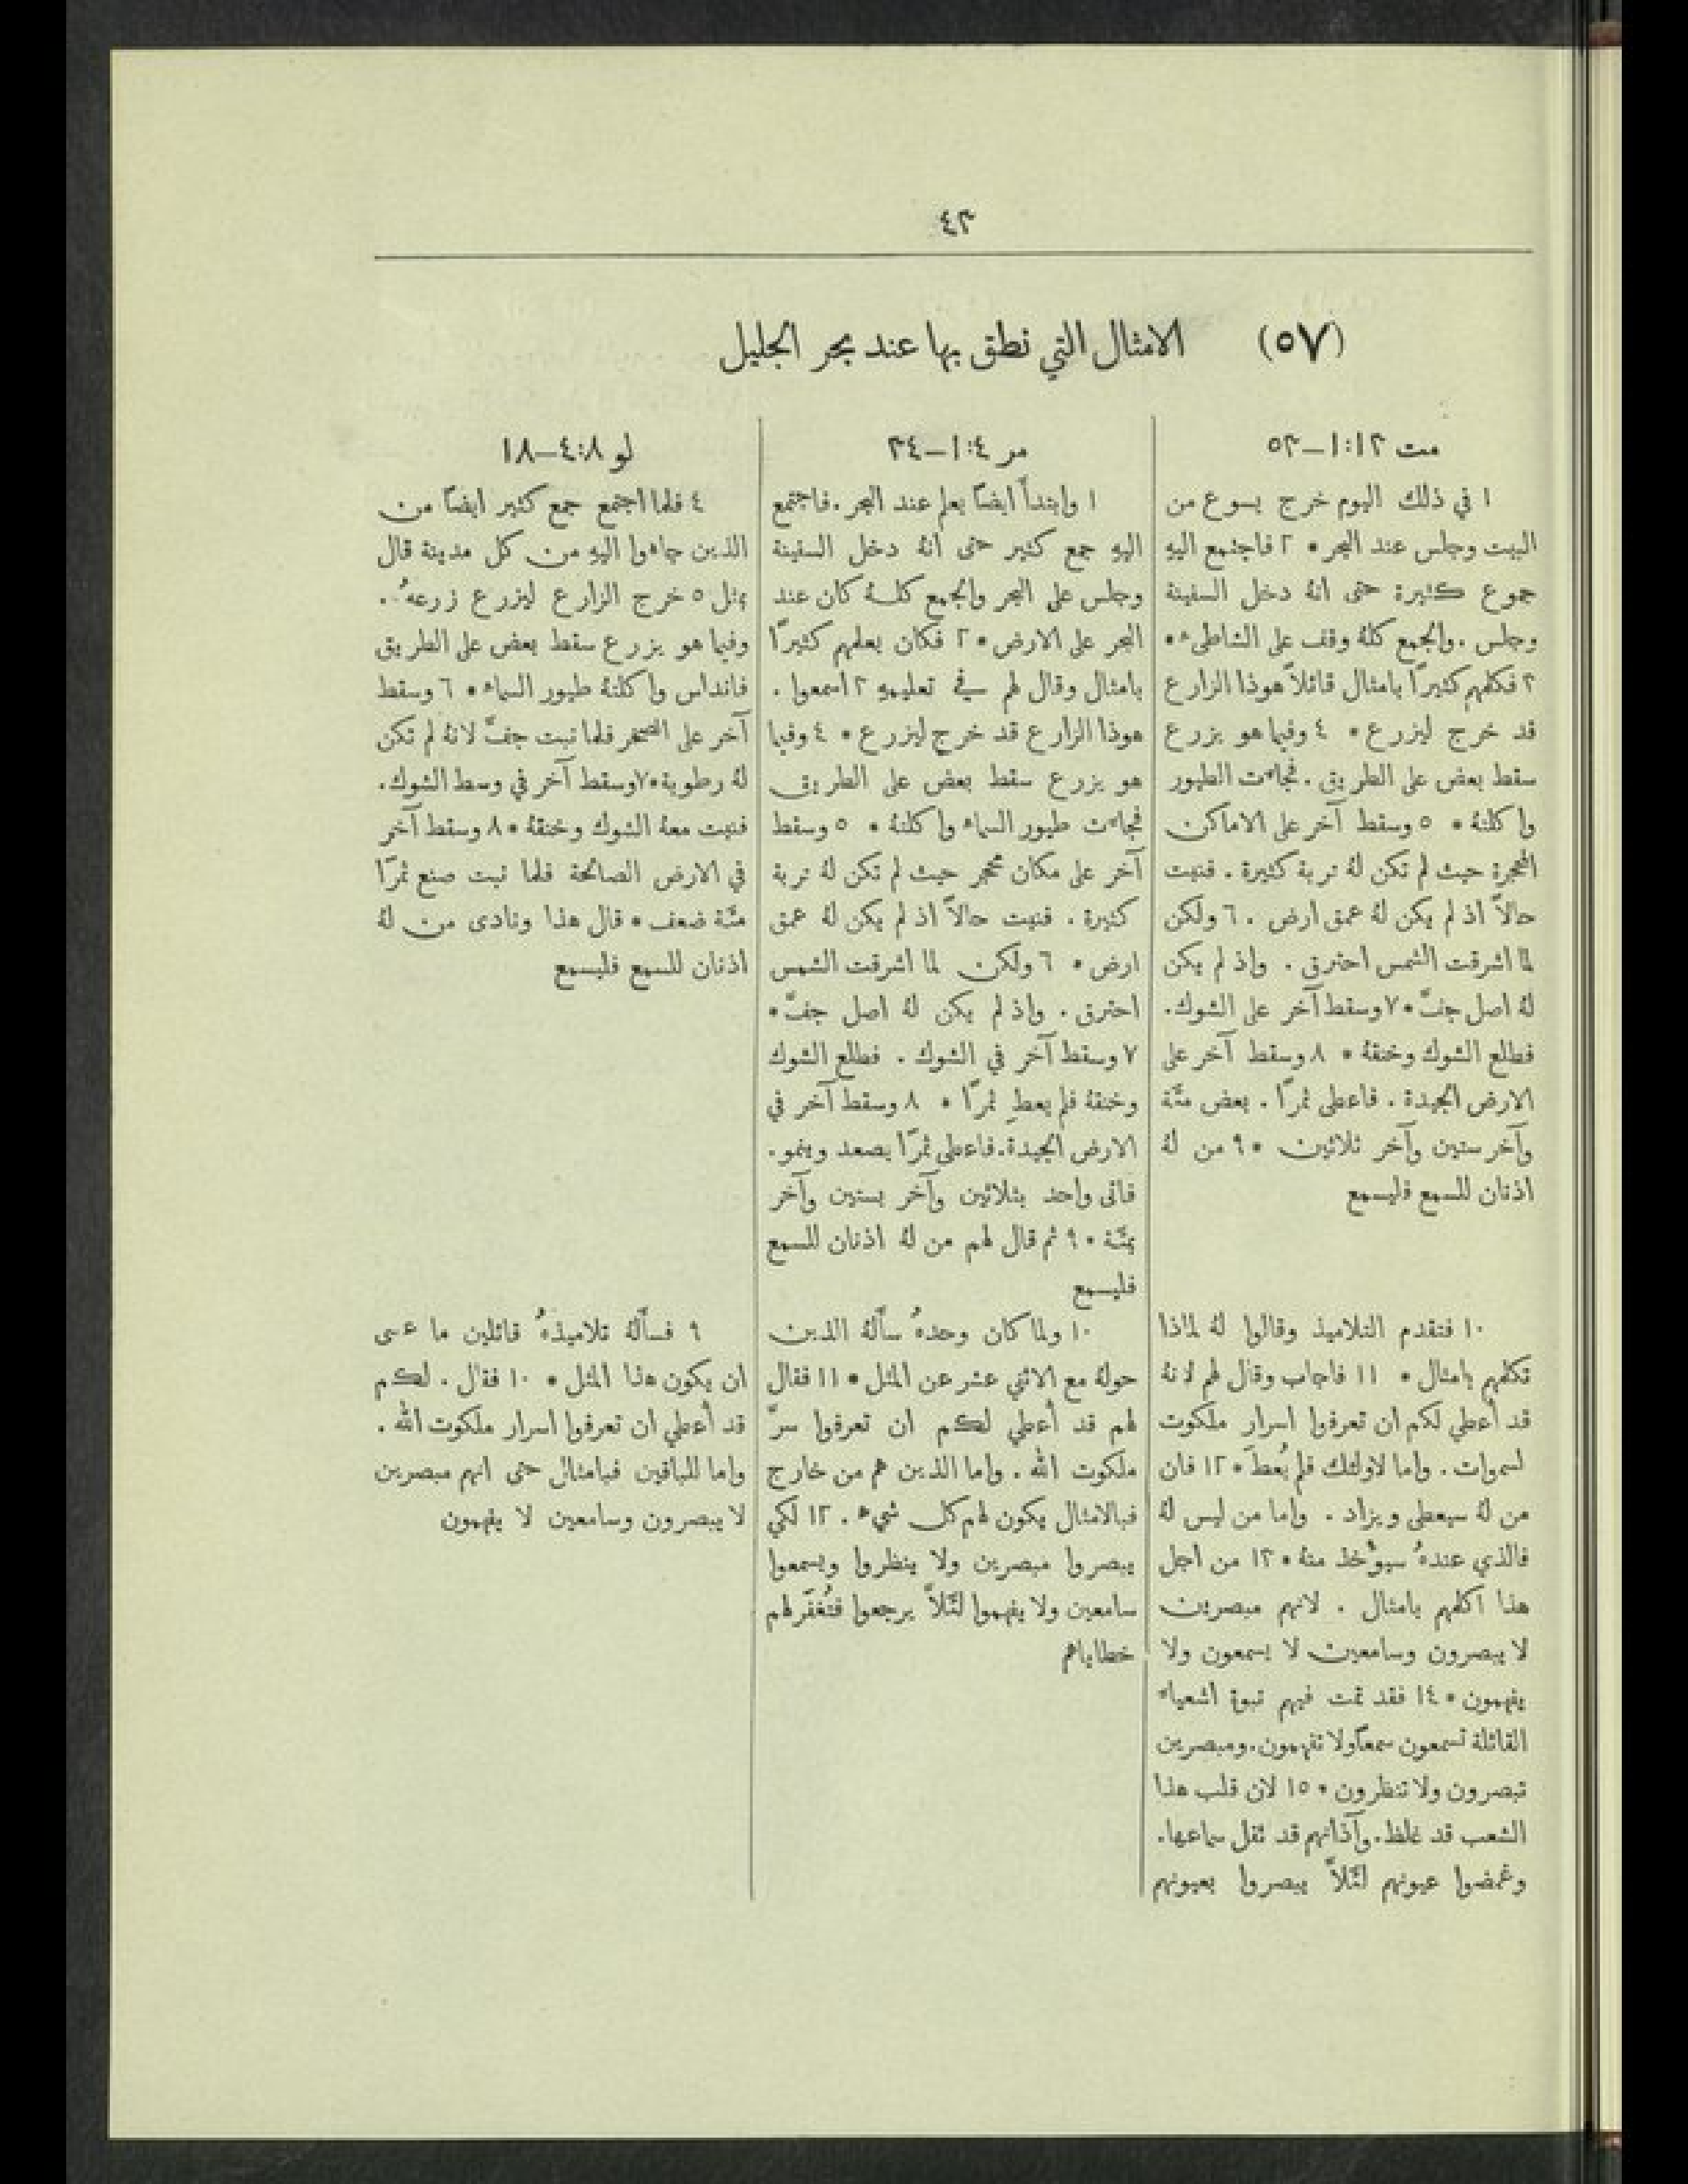 ٤٣
(٥٧) الامثال التي نطق بها عند بحر الجليل
مت ١٣:١–٥٣
١ في ذلك اليوم خرج يسوع من
البيت وجلس عند البحر * ٢ فاجتمع اليهِ
جموع كثيرة حتى انهُ دخل السفينة
وجلس . والجمع كلهُ وقف على الشاطىء *
٣ فكلمهم كثيرًا بامثال قائلاً هوذا الزارع
قد خرج ليزرع * ٤ وفيما هو يزرع
سقط بعض على الطريق . فجاءت الطيور
واكلتهُ * ٥ وسقط آخر على الاماكن
المحجرة حيث لم تكن لهُ تربة كثيرة . فنبت
حالاً اذ لم يكن لهُ عمق ارض . ٦ ولكن
لما اشرقت الشمس احترق . واذ لم يكن
لهُ اصل جفَّ * ٧ وسقط آخر على الشوك .
فطلع الشوك وخنقهُ * ٨ وسقط آخر على
الارض الجيدة . فاعطى ثمرًا . بعض مئَة
وآخر ستين وآخر ثلاثين * ٩ من لهُ
اذنان للسمع فليسمع
١٠ فتقدم التلاميذ وقالوا لهُ لماذا
تكلمهم بامثال * ١١ فاجاب وقال لهم لانهُ
قد أُعطي لكم ان تعرفوا اسرار ملكوت
لسموات . واما لاولئك فلم يُعطَ * ١٢ فان
من لهُ سيعطى ويزاد . واما من ليس لهُ
فالذي عندهُ سيوْخذ منهُ * ١٣ من اجل
هذا اكلمهم بامثال . لانهم مبصرين
لا يبصرون وسامعين لا يسمعون ولا
يفهمون * ١٤ فقد تمت فيهم نبوة اشعياء
القائلة تسمعون سمعًا ولا تفهمون . ومبصرين
تبصرون ولا تنظرون * ١٥ لان قلب هذا
الشعب قد غلظ . وآذانهم قد ثقل سماعها .
وغمضوا عيونهم لئَلاَّ يبصروا بعيونهم
مر ٤:١–٣٤
١ وابتدأَ ايضًا يعلم عند البحر . فاجتمع
اليهِ جمع كثير حتى انهُ دخل السفينة
وجلس على البحر والجمع كلهُ كان عند
البحر على الارض * ٢ فكان يعلمهم كثيرًا
بامثال وقال لهم في تعليمهِ ٣ اسمعوا .
هوذا الزارع قد خرج ليزرع * ٤ وفيما
هو يزرع سقط بعض على الطريق
فجاءت طيور السماء واكلتهُ * ٥ وسقط
آخر على مكان محجر حيث لم تكن لهُ تربة
كثيرة . فنبت حالاً اذ لم يكن لهُ عمق
ارض * ٦ ولكن لما اشرقت الشمس
احترق . واذ لم يكن لهُ اصل جفَّ *
٧ وسقط آخر في الشوك . فطلع الشوك
وخنقهُ فلم يعطِ ثمرًا * ٨ وسقط آخر في
الارض الجيدة . فاعطى ثمرًا يصعد وينمو .
فاتى واحد بثلاثين وآخر بستين وآخر
بمئَة * ٩ ثم قال لهم من لهُ اذنان للسمع
فليسمع
١٠ ولما كان وحدهُ سأَلهُ الذين
حولهُ مع الاثني عشر عن المثل * ١١ فقال
لهم قد أُعطي لكم ان تعرفوا سرَّ
ملكوت الله . واما الذين هم من خارج
فبالامثال يكون لهم كل شيء . ١٢ لكي
يبصروا مبصرين ولا ينظروا ويسمعوا
سامعين ولا يفهموا لئَلاَّ يرجعوا فتُغفَر لهم
خطاياهم
لو ٨:٤–١٨
٤ فلما اجتمع جمع كثير ايضًا من
الذين جاءوا اليهِ من كل مدينة قال
بمثل ٥ خرج الزارع ليزرع زرعهُ .
وفيما هو يزرع سقط بعض على الطريق
فانداس واكلتهُ طيور السماء * ٦ وسقط
آخر على الصخر فلما نبت جفَّ لانهُ لم تكن
لهُ رطوبة * ٧ وسقط آخر في وسط الشوك .
فنبت معهُ الشوك وخنقهُ * ٨ وسقط آخر
في الارض الصالحة فلما نبت صنع ثمرًا
مئَة ضعف * قال هذا ونادى من لهُ
اذنان للسمع فليسمع
٩ فسأَلهُ تلاميذهُ قائلين ما عسى
ان يكون هذا المثل * ١٠ فقال . لكم
قد أُعطي ان تعرفوا اسرار ملكوت الله .
واما للباقين فبامثال حتى انهم مبصرين
لا يبصرون وسامعين لا يفهمون